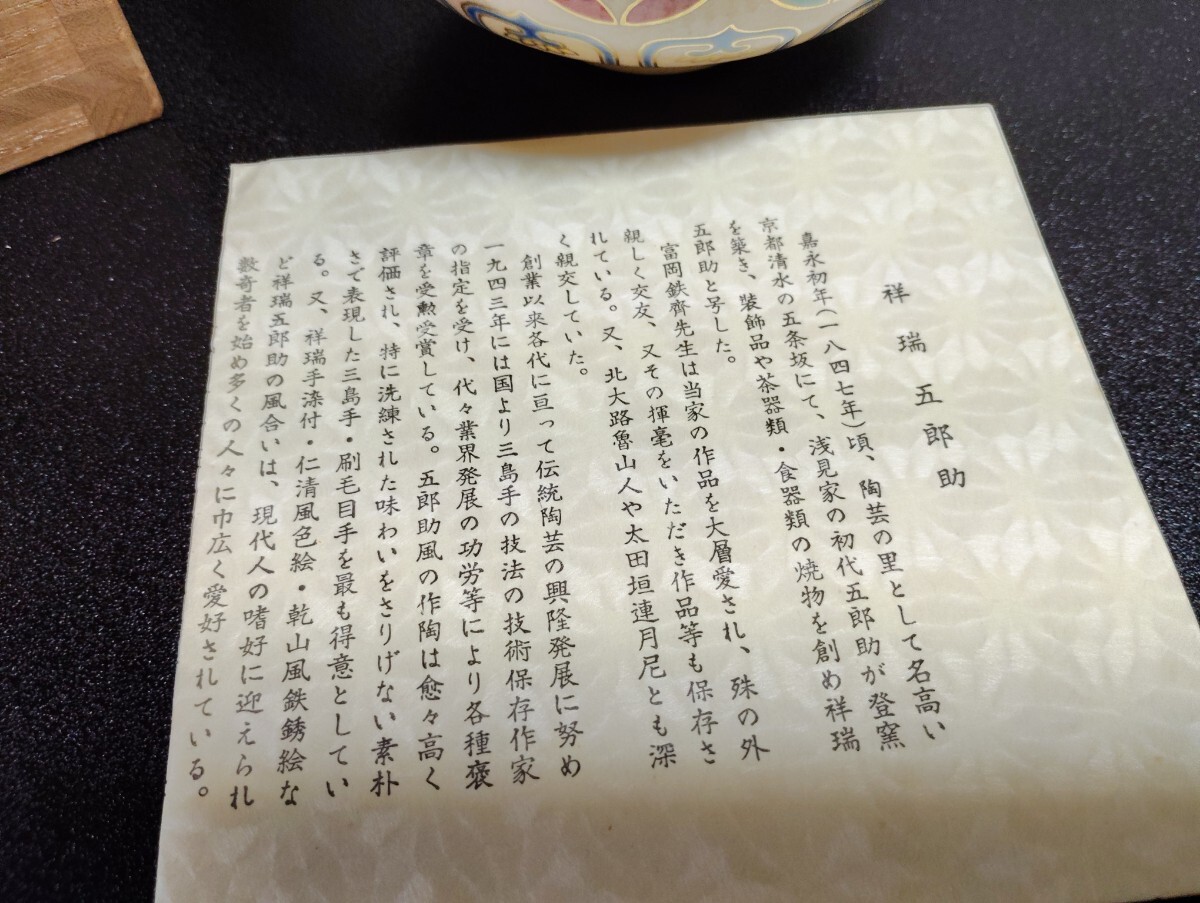 祥瑞五郎助
嘉永初年(一八四七年)頃、陶芸の里として名高い
京都清水の五条坂にて、浅見家の初代五郎助が登窯
を築き、装飾品や茶器類・食器類の焼物を創め祥瑞
五郎助と号した。
富岡鉄齊先生は当家の作品を大層愛され、殊の外
親しく交友、又その揮毫をいただき作品等も保存さ
れている。又、北大路魯山人や太田垣連月尼とも深
く親交していた。
創業以来各代に亘って伝統陶芸の興隆発展に努め
一九四三年には国より三島手の技法の技術保存作家
の指定を受け、代々業界発展の功労等により各種褒
章を受勲受賞している。五郎助風の作陶は愈々高く
評価され、特に洗練された味わいをさりげない素朴
さで表現した三島手・刷毛目手を最も得意としてい
る。又、祥瑞手染付・仁清風色絵・乾山風鉄銹絵な
ど祥瑞五郎助の風合いは、現代人の嗜好に迎えられ
数奇者を始め多くの人々に巾広く愛好されている。